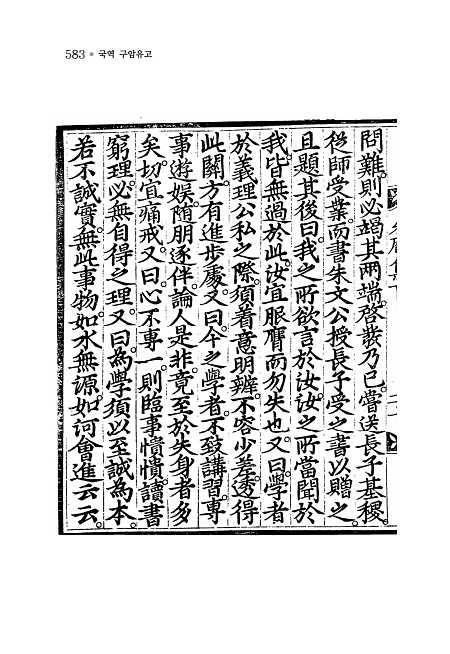 583 • 국역 구암유고
問難。則必竭其兩端。啓發乃已。嘗送長子基稷。
從師受業。而書朱文公授長子受之書以贈之。
且題其後曰。我之所欲言於汝。汝之所當聞於
我。皆無過於此。汝宜服膺而勿失也。又曰。學者
於義理公私之際。須着意明辨。不容少差。透得
此關。方有進步處。又曰。今之學者。不致講習。專
事遊娱。随朋逐伴。論人是非。竟至於失身者多
矣。切宜痛戒。又曰。心不專一。則臨事憒憒。讀書
窮理。必無自得之理。又曰。為學須以至誠為本。
若不誠實。無此事物。如水無源。如何會進云云。